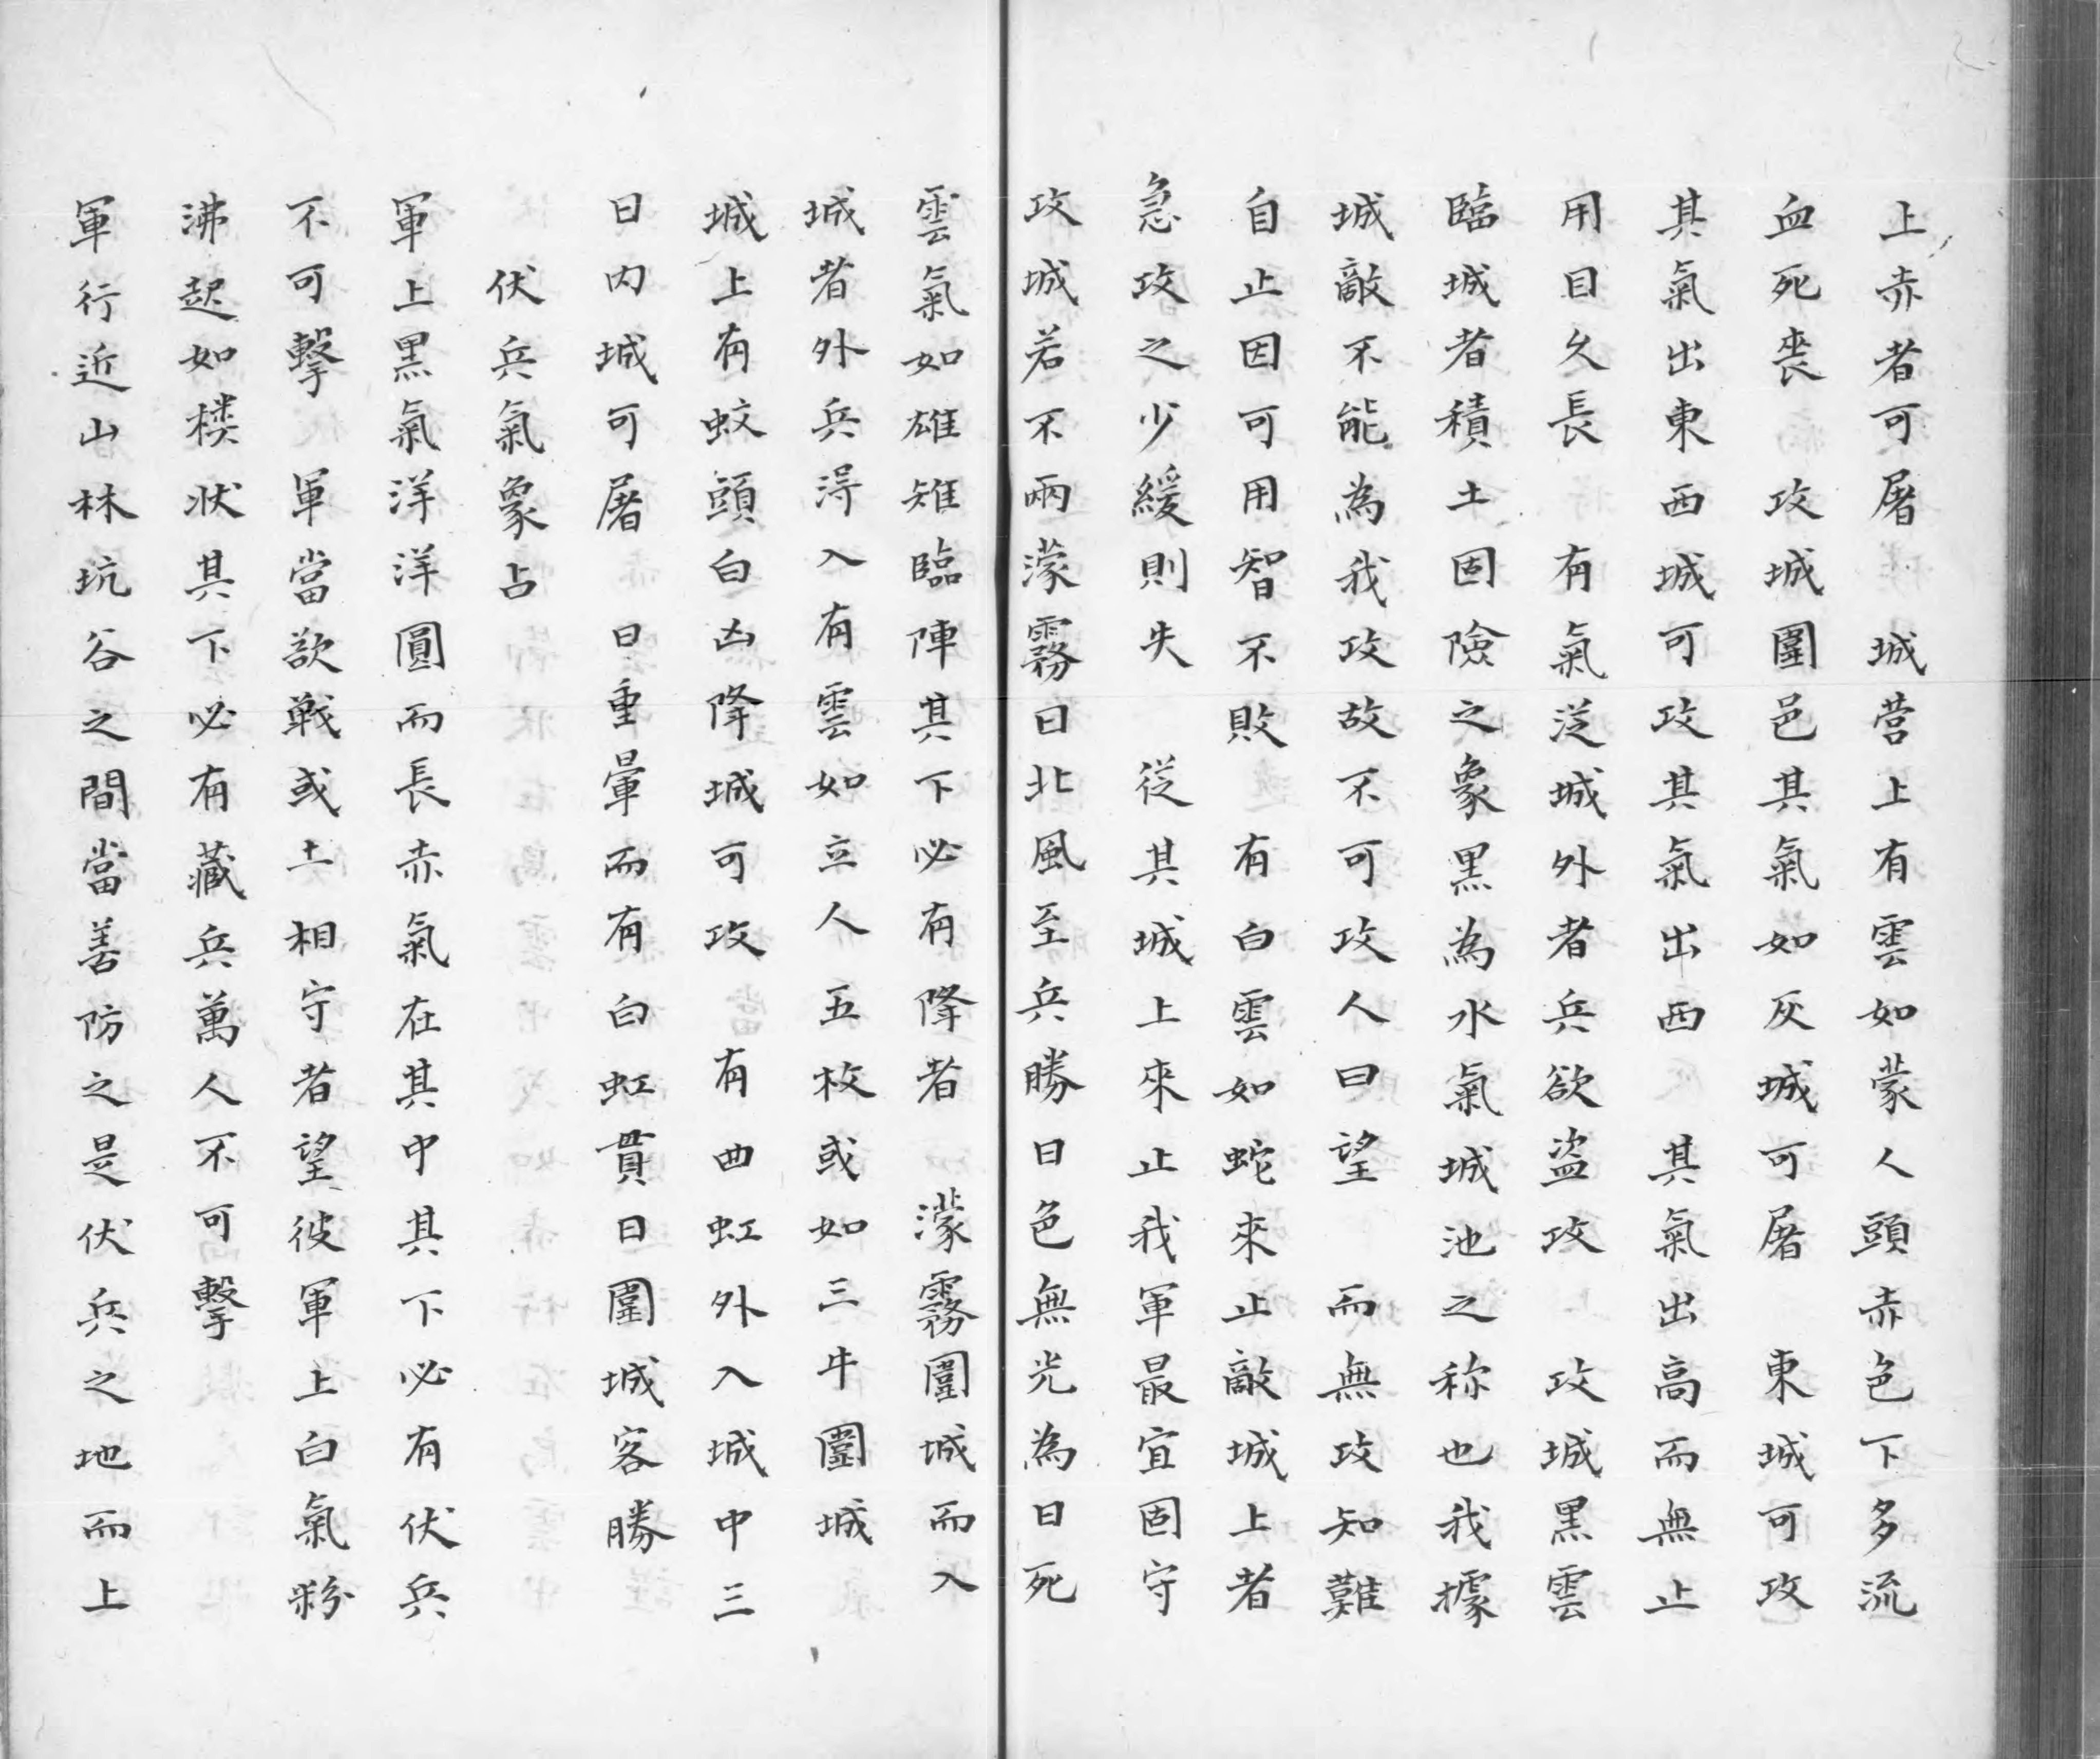 上赤者可屠　城营上有雲如蒙人頭赤色下多流
血死喪　攻城圍邑其氣如灰城可屠　東城可攻
其氣出東西城可攻其氣出西　其氣出高而無止
用日久長　有氣泛城外者兵欲盗攻　攻城黑雲
臨城者積土固險之象黑為水氣城池之称也我據
城敵不能為我攻故不可攻人曰望　而無攻知難
自止因可用智不敗　有白雲如蛇來止敵城上者
急攻之少緩則失　從其城上來止我軍最宜固守
攻城若不兩濛霧日北風至兵勝日色無光為日死
雲氣如雄雉臨陣其下必有降者　濛霧圍城而入
城者外兵淂入有雲如立人五枚或如三牛圍城
城上有蛟頭白凶降城可攻　有曲虹外入城中三
日内城可屠　日重暈而有白虹貫日圍城客勝
伏兵氣象占
軍上黑氣洋洋圓而長赤氣在其中其下必有伏兵
不可擊　軍當欲戦或土相守者望彼軍上白氣粉
沸起如楼状其下必有藏兵萬人不可擊
軍行近山林坑谷之間當善防之是伏兵之地而上